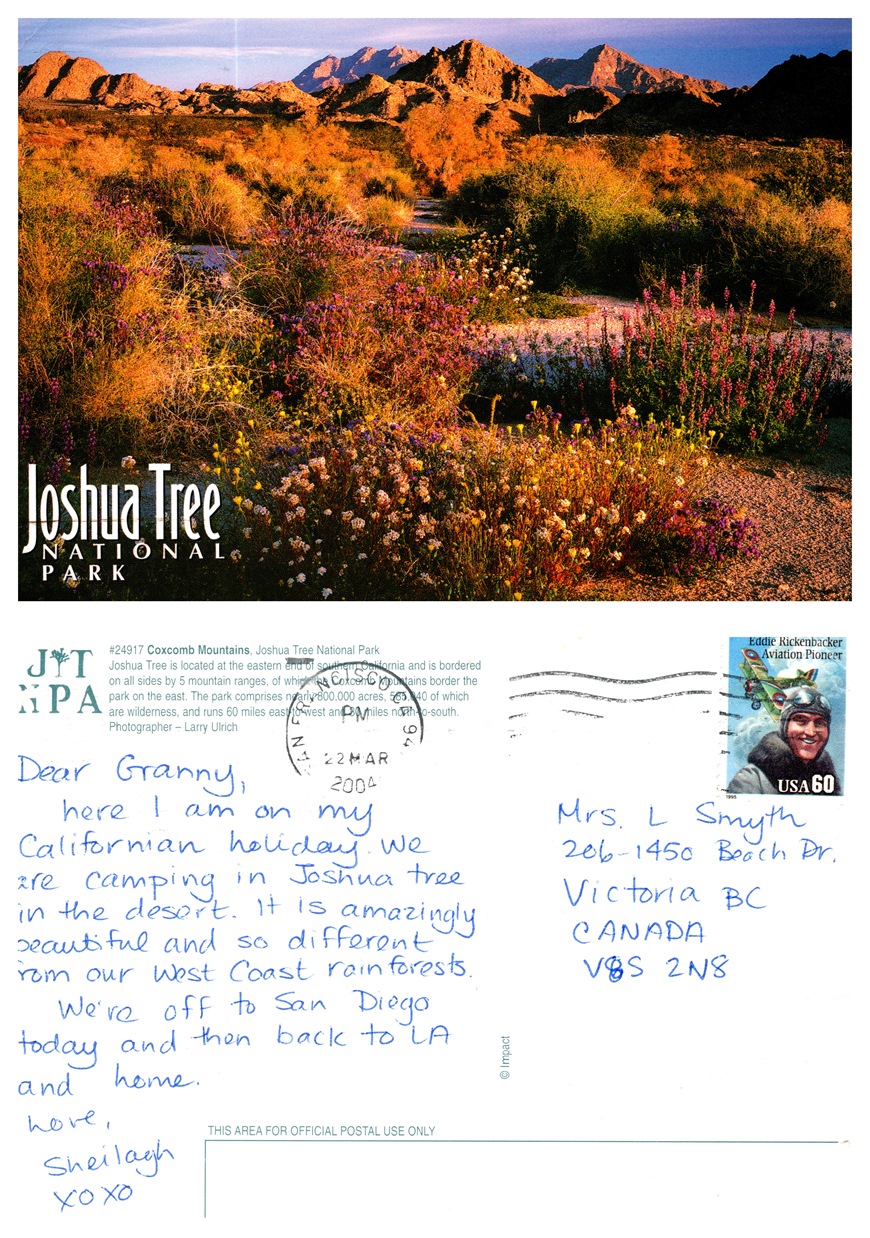 Joshua Tree
NATIONAL
PARK
JT
NPA
#24917 Coxcomb Mountains, Joshua Tree National Park
Joshua Tree is located at the eastern end of southern California and is bordered
on all sides by 5 mountain ranges, of which the Coxcomb Mountains border the
park on the east. The park comprises nearly 800.000 acres, of which
are wilderness, and runs 60 miles east-to-west and 30 miles north-to-south.
Photographer – Larry Ulrich
SAN FRANCISCO CA 94
PM
22 MAR
2004
Eddie Rickenbacker
Aviation Pioneer
USA 60
1995
Dear Granny,
here I am on my
Californian holiday. We
are camping in Joshua tree
in the desert. It is amazingly
beautiful and so different
from our West Coast rainforests.
We're off to San Diego
today and then back to LA
and home.
Love,
Sheilagh
XOXO
Mrs. L Smyth
206-1450 Beach Dr.
Victoria BC
CANADA
V8S 2N8
© Impact
THIS AREA FOR OFFICIAL POSTAL USE ONLY